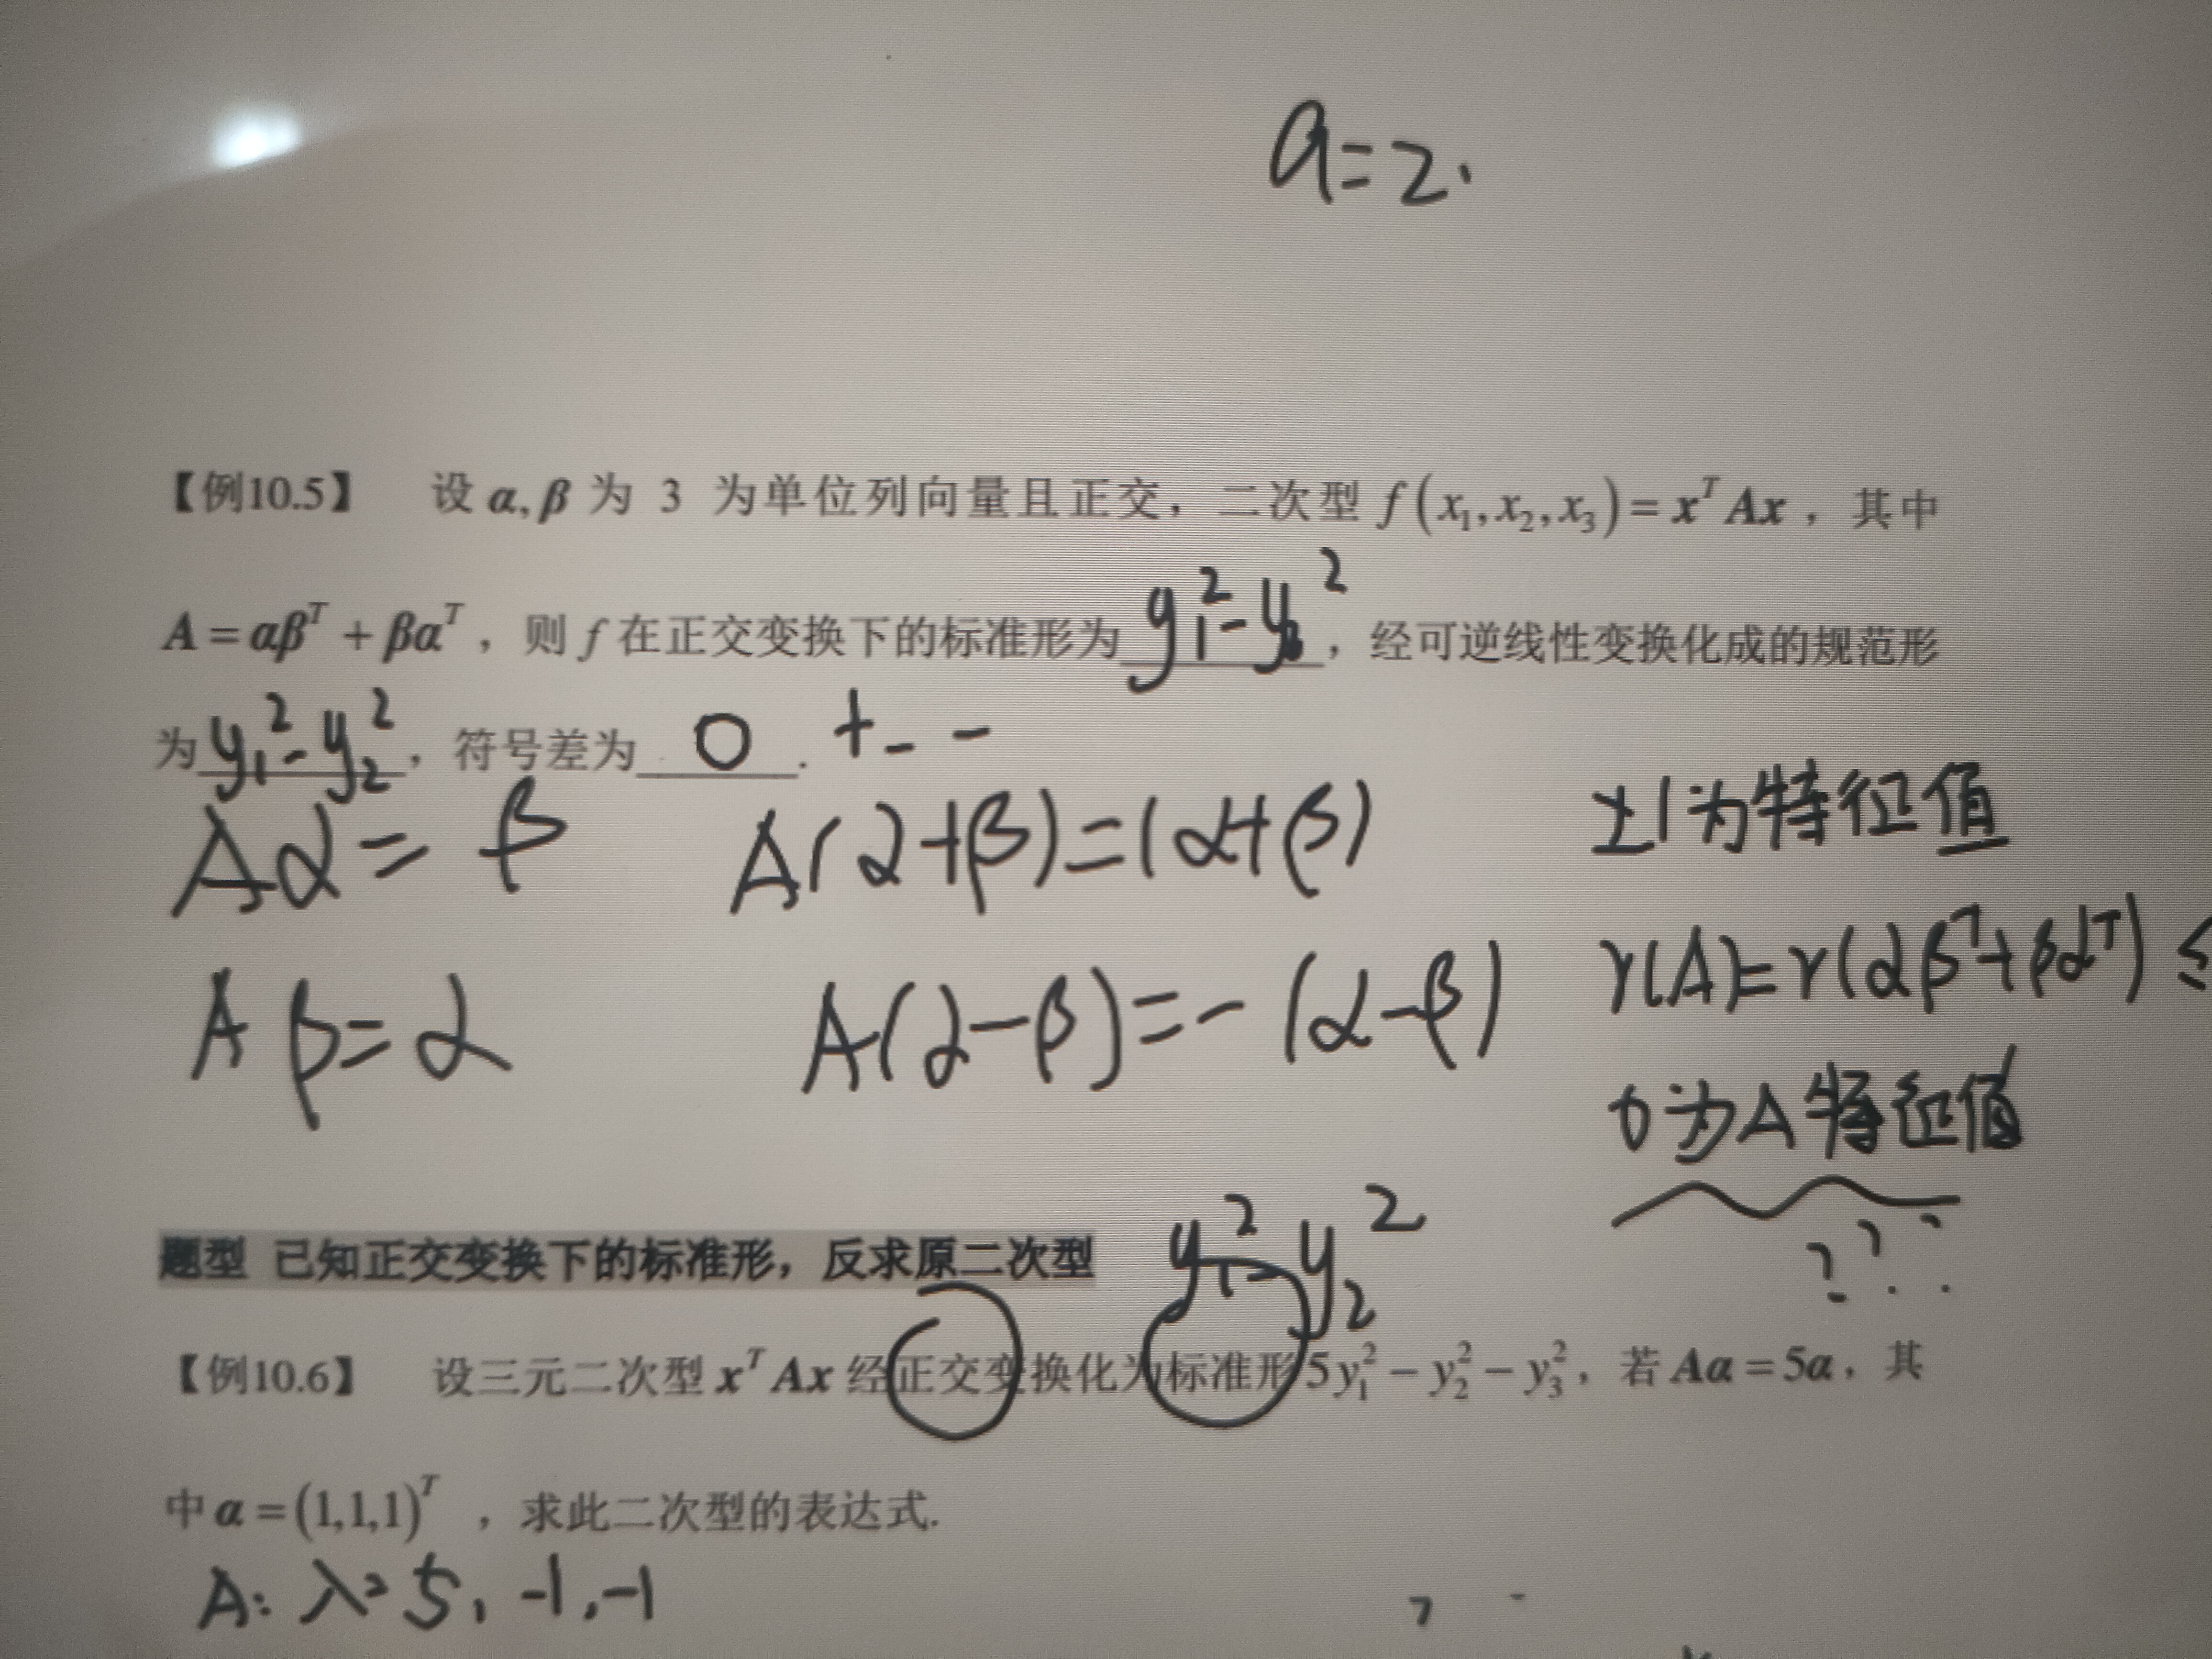 a=2.
【例10.5】 设 α, β 为 3 为单位列向量且正交，二次型 f(x₁, x₂, x₃) = xᵀAx，其中
A = αβᵀ + βαᵀ，则 f 在正交变换下的标准形为 y₁² - y²，经可逆线性变换化成的规范形
为 y₁² - y₂²，符号差为 0 . + - -
Aα = β A(α+β) = (α+β) ±1为特征值
r(A) = r(αβᵀ + βαᵀ) ≤
Aβ = α A(α-β) = -(α-β)
0为A特征值
???
题型 已知正交变换下的标准形，反求原二次型 y₁² - y₂²
【例10.6】 设三元二次型 xᵀAx 经正交变换化为标准形 5y₁² - y₂² - y₃²，若 Aα = 5α，其
中 α = (1,1,1)ᵀ ，求此二次型的表达式.
A: λ=5, -1, -1